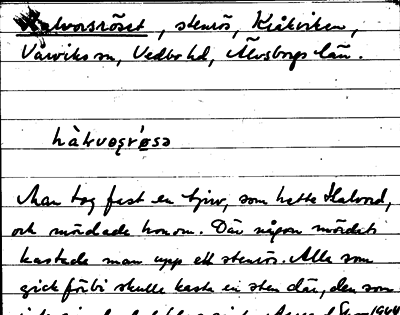 Halvorsröset, stenrös, Kråkviken,
Vårviks sn, Vedbo hd, Älvsborgs län.
Man tog fast en tjuv, som hette Halvord,
och mördade honom. Där någon mördats
kastade man upp ett stenrös. Alla som
gick förbi skulle kasta en sten där, den som